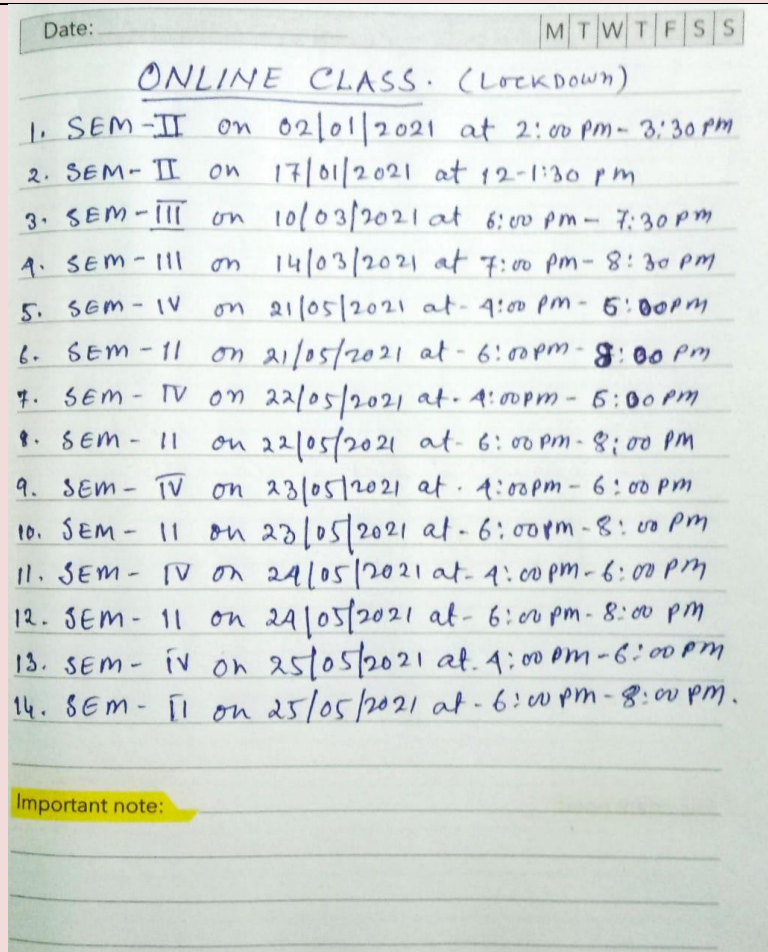 Date: M T W T F S S
ONLINE CLASS. (LockDown)
1. SEM-II on 02/01/2021 at 2:00 pm- 3:30 pm
2. SEM- II on 17/01/2021 at 12-1:30 pm
3. SEM-III on 10/03/2021 at 6:00 pm- 7:30 pm
4. SEM-III on 14/03/2021 at 7:00 pm- 8:30 pm
5. SEM-IV on 21/05/2021 at- 4:00 pm- 6:00pm
6. SEM-II on 21/05/2021 at- 6:00pm- 8:00 pm
7. SEM-IV on 22/05/2021 at- 4:00pm- 6:00 pm
8. SEM-II on 22/05/2021 at- 6:00 pm-8:00 PM
9. SEM- IV on 23/05/2021 at. 4:00pm- 6:00 pm
10. SEM- II on 23/05/2021 at- 6:00pm-8:00 pm
11. SEM- IV on 24/05/2021 at- 4:00pm-6:00 pm
12. SEM- II on 24/05/2021 at- 6:00 pm-8:00 pm
13. SEM- IV on 25/05/2021 at. 4:00 pm-6:00 pm
14. SEM- II on 25/05/2021 at- 6:00 pm-8:00 pm.
Important note: